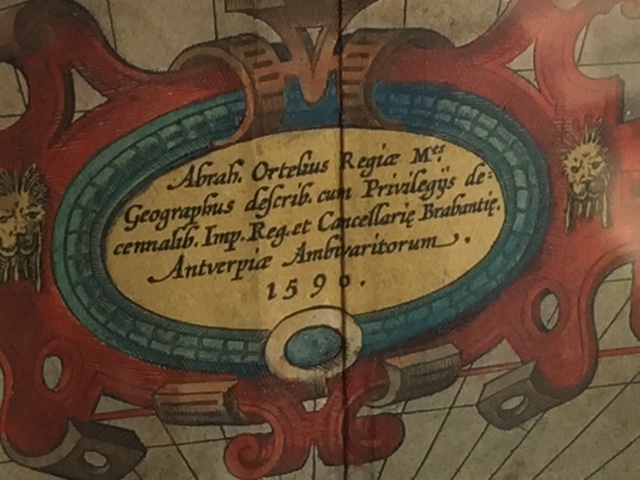 Abrah. Ortelius Regiæ M.tes
Geographus describ. cum Privilegijs de=
cennalib. Imp. Reg. et Cancellarię Brabantię.
Antverpiæ Ambivaritorum.
1590.